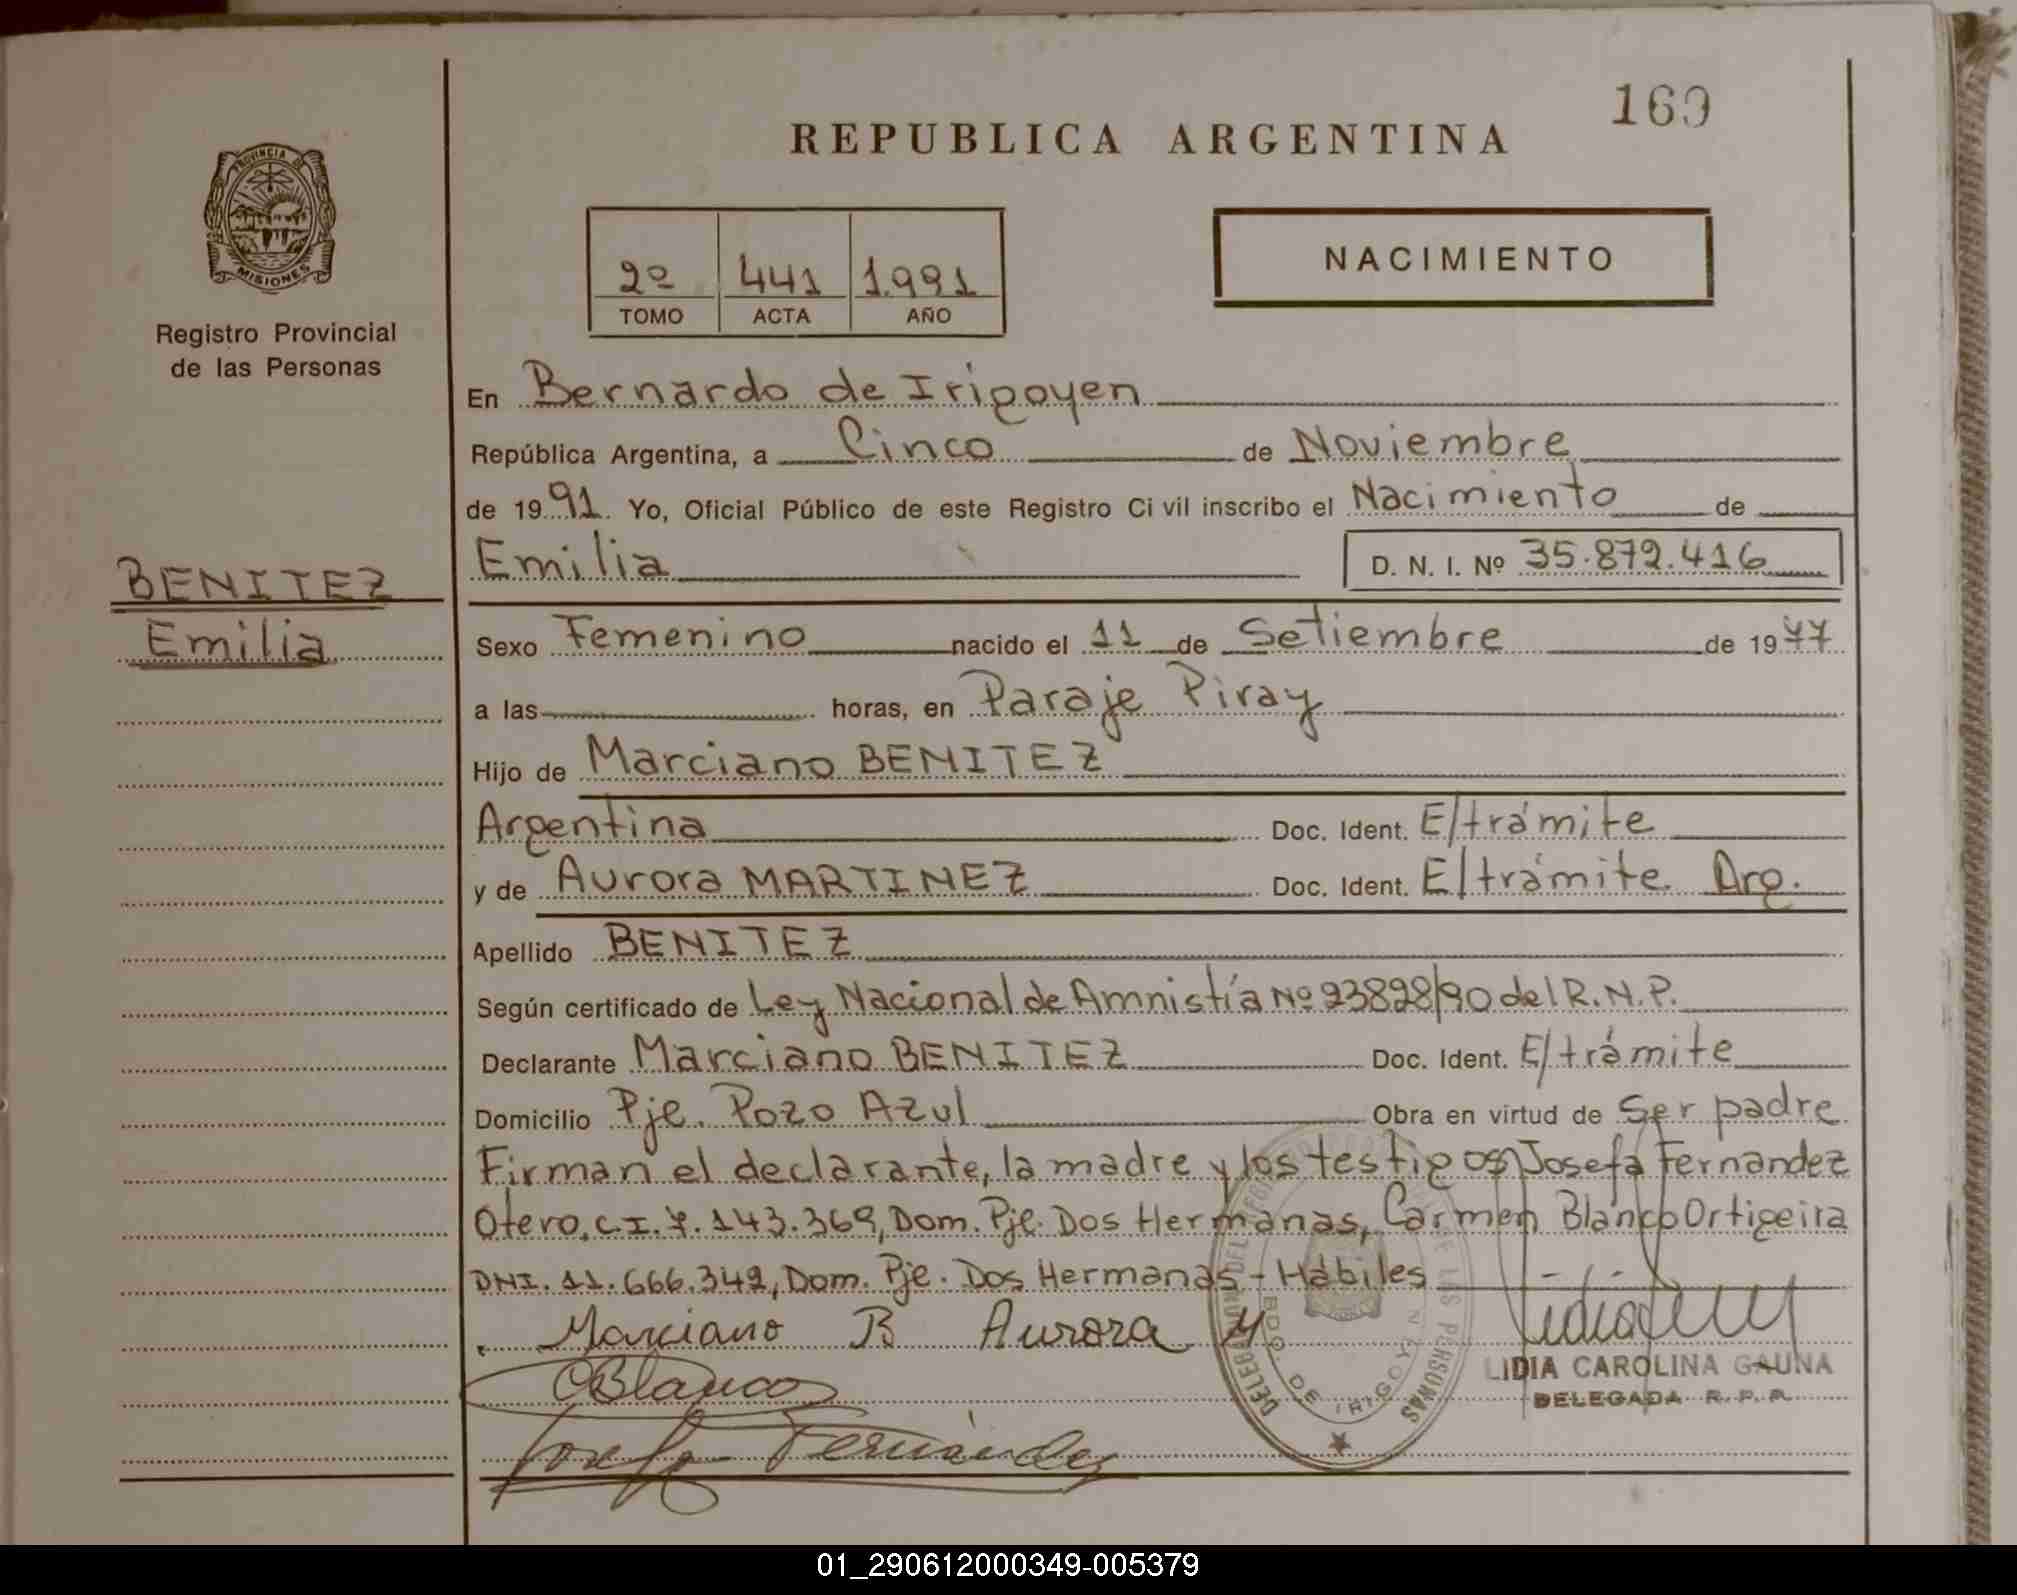 160
REPUBLICA ARGENTINA
PROVINCIA DE
MISIONES
Registro Provincial
de las Personas
2º 441 1.991
TOMO ACTA AÑO
NACIMIENTO
En Bernardo de Irigoyen
República Argentina, a Cinco de Noviembre
de 1991. Yo, Oficial Público de este Registro Ci vil inscribo el Nacimiento de
Emilia D. N. I. Nº 35.872.416
BENITEZ
Emilia
Sexo Femenino nacido el 11 de Setiembre de 1977
a las horas, en Paraje Piray
Hijo de Marciano BENITEZ
Argentina Doc. Ident. E/trámite
y de Aurora MARTINEZ Doc. Ident. E/trámite Arg.
Apellido BENITEZ
Según certificado de Ley Nacional de Amnistía Nº 23828/90 del R.N.P.
Declarante Marciano BENITEZ Doc. Ident. E/trámite
Domicilio Pje. Pozo Azul Obra en virtud de Ser padre
Firman el declarante, la madre y los testigos Josefa Fernandez
Otero, C.I. 7.143.369, Dom. Pje. Dos Hermanas, Carmen Blanco Ortigeira
DNI. 11.666.342, Dom. Pje. Dos Hermanas - Hábiles
Marciano B Aurora M
CBlanco
Josefa Fernández
BDO. DE IRIGOYEN
DE LAS PERSONAS
LIDIA CAROLINA GAUNA
DELEGADA R. P. P.
01_290612000349-005379